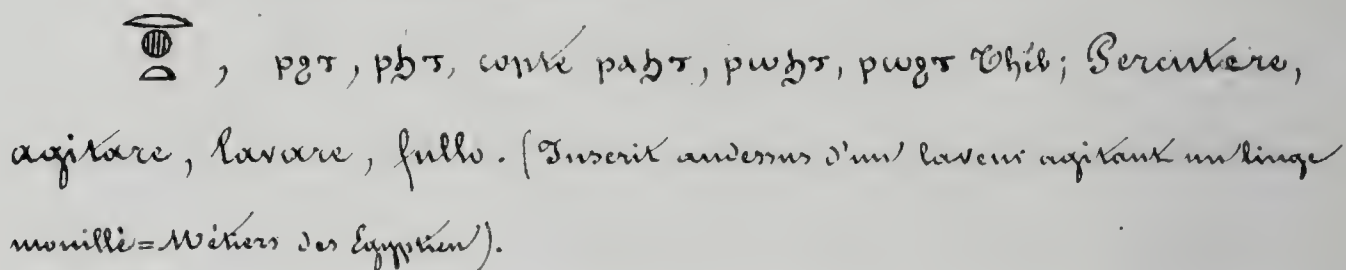 𓂋𓐍𓏏, ⲣϩⲧ, ⲣϧⲧ, copte ⲣⲁϧⲧ, ⲣⲱϧⲧ, ⲣⲱϩⲧ Théb; Percutere,
agitare, lavare, fullo. (Inscrit audessus d'un laveur agitant un linge
mouillé = Métiers des Egyptien).